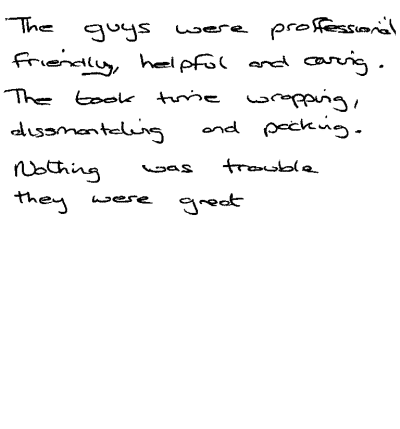 The guys were professional
friendly, helpful and caring.
The took time wrapping,
dissmantaling and packing.
Nothing was trouble
they were great